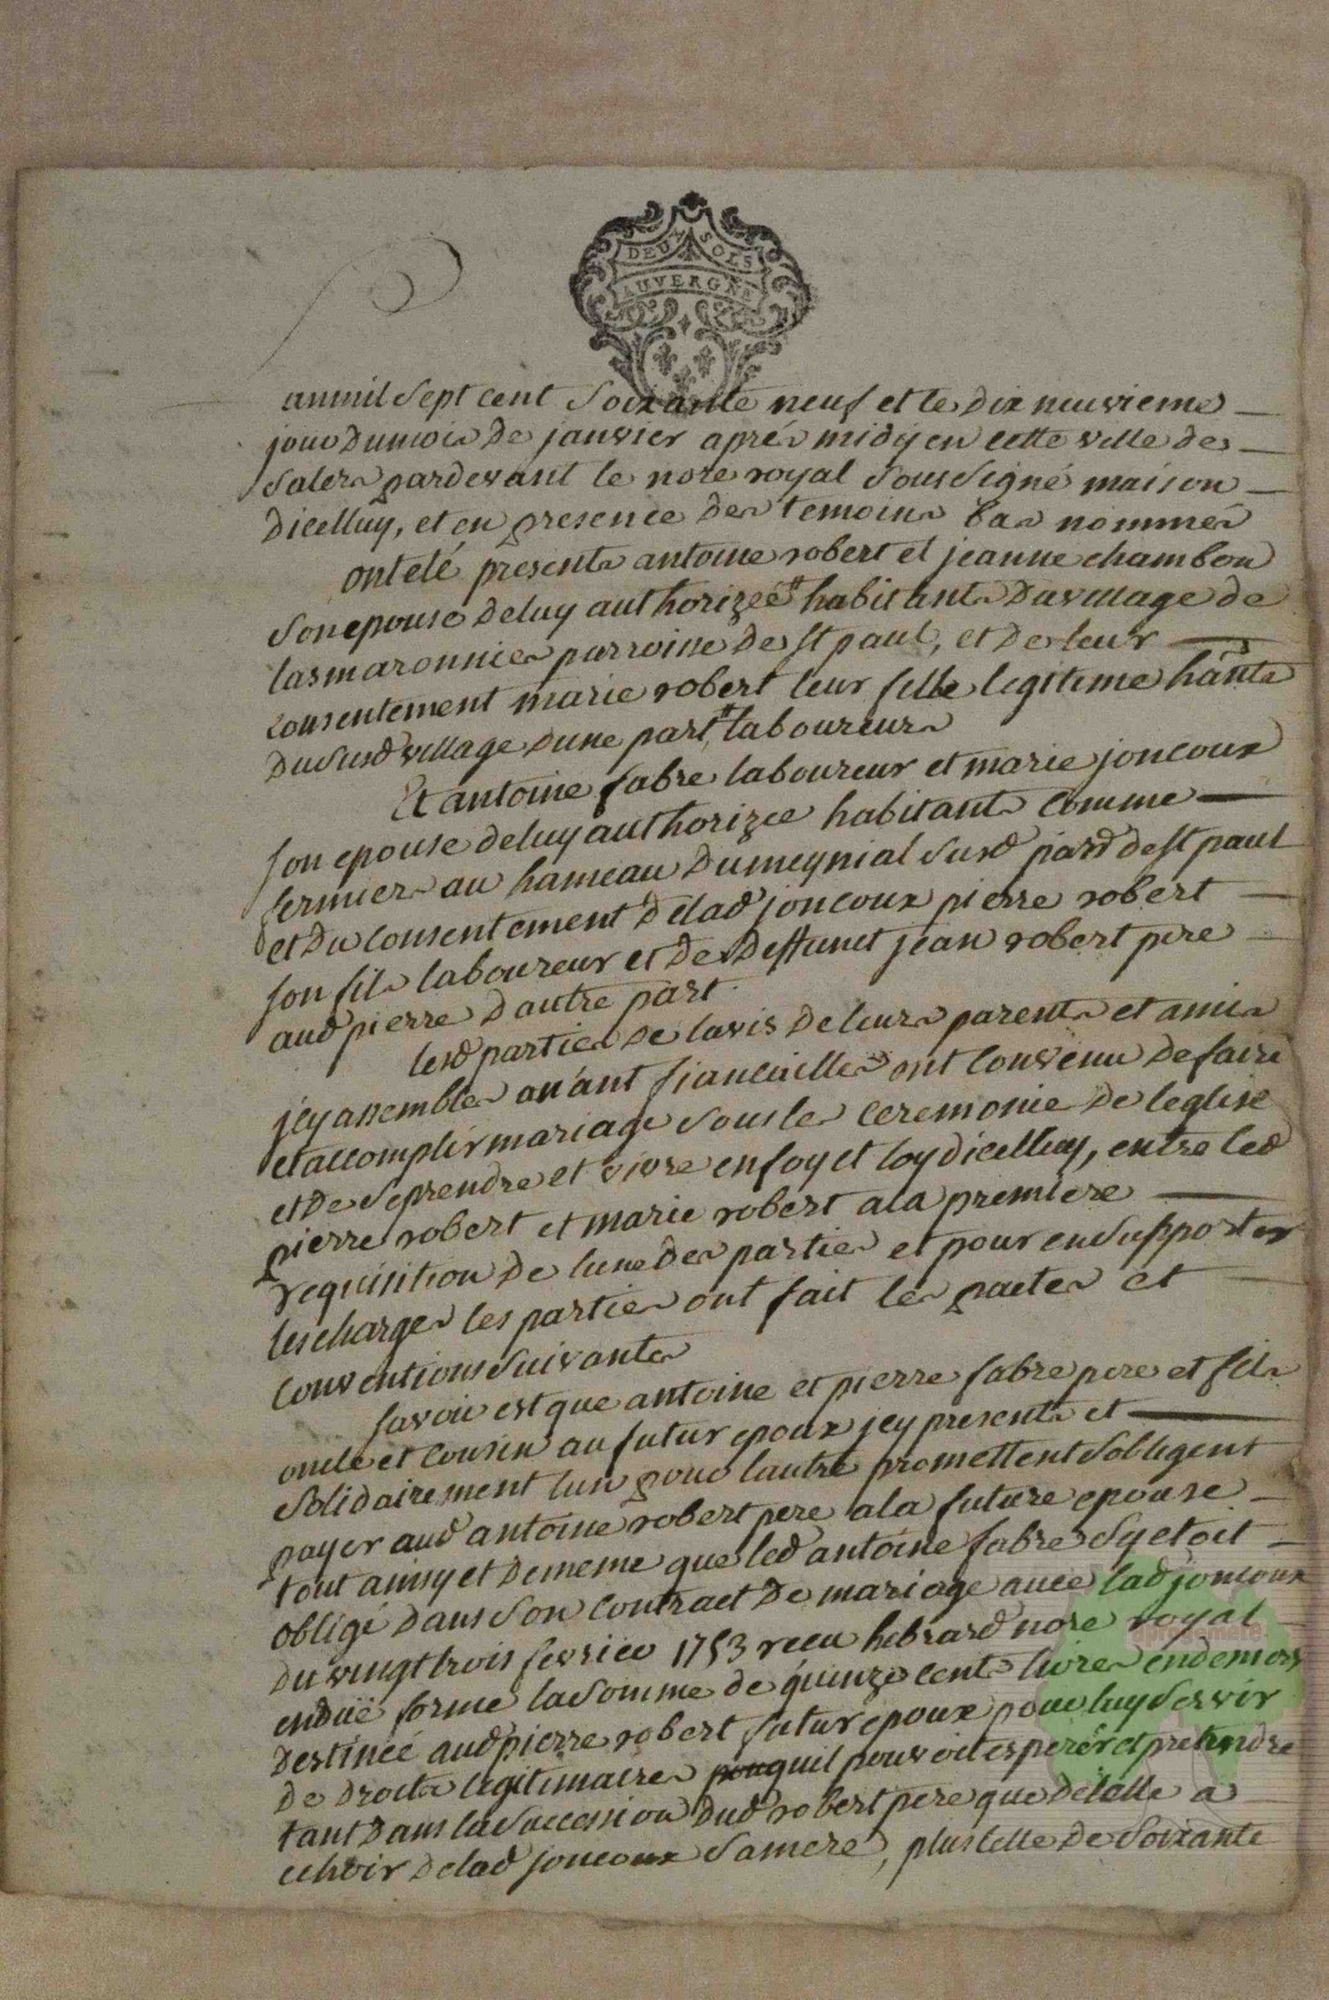 DEUX SOLS
AUVERGNE
anmil sept cent soixante neuf et le dix neuvieme
jour du mois de janvier aprés midy en cette ville de
salers pardevant le nore royal soussigné maison
dicelluy, et en presence des temoins bas nommés
ont eté presents antoine robert et jeanne chambon
son epouse deluy authorizeé habitants du village de
lasmaronnies parroisse de st paul, et de leur
consentement marie robert leur fille legitime hãnts
du susd village dune part, laboureurs
Et antoine fabre laboureur et marie joncoux
son epouse deluy authorizee habitants comme
fermiers au hameau dumeynial susd parr de st paul
et du consentement delad joncoux pierre robert
son fils laboureur et de deffunct jean robert pere
aud pierre dautre part.
lesd parties de lavis de leurs parents et amis
jcy assembles avant fiancailles ont convenu de faire
et accomplir mariage sous les ceremonies de leglise
et de se prendre et vivre en foy et loy dicelluy, entre led
pierre robert et marie robert a la premiere
requisition de lune des parties et pour en supporter
les charges les parties ont fait les pactes et
conventions suivants
savoir est que antoine et pierre fabre pere et fils
oncle et cousin au futur epoux jcy presents et
solidairement lun pour lautre promettent sobligent
payer aud antoine robert pere a la future epouse
tout ainsy et de meme que led antoine fabre sy etoit
obligé dans son contract de mariage avec lad joncoux
du vingt trois fevrier 1753 recu hebrard nore royal
en duë forme la somme de quinze cents livres en deniers
destinéé aud pierre robert futur epoux pour luy servir
de droits legitimaires quil pouvoit esperer et pretendre
tant dans la succession dud robert pere que de celle a
echoir delad joncoux sa mere, plus celle de soixante
aprogemere